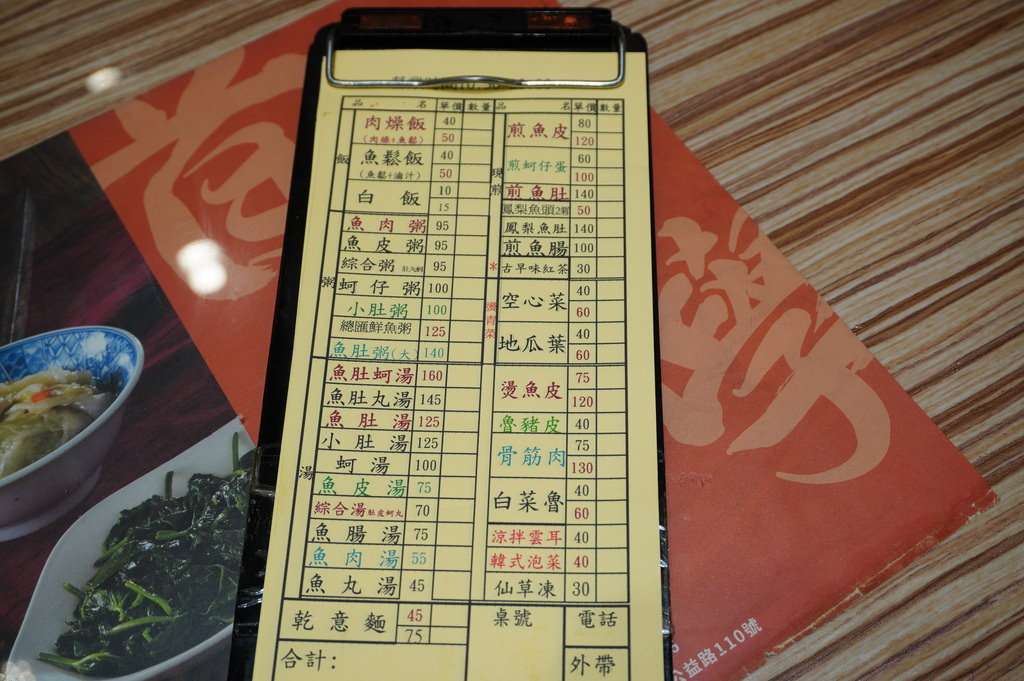 品 名 單價 數量 品 名 單價 數量
飯
肉燥飯 40
(肉燥+魚鬆) 50
魚鬆飯 40
(魚鬆+滷汁) 50
白 飯 10
15
粥
魚肉粥 95
魚皮粥 95
綜合粥 95
蚵仔粥 100
小肚粥 100
總匯鮮魚粥 125
魚肚粥(大) 140
湯
魚肚蚵湯 160
魚肚丸湯 145
魚肚湯 125
小肚湯 125
蚵湯 100
魚皮湯 75
綜合湯肚皮蚵丸 70
魚腸湯 75
魚肉湯 55
魚丸湯 45
乾意麵 45
75
合計:
現煎
煎魚皮 80
120
煎蚵仔蛋 60
100
煎魚肚 140
鳳梨魚頭2粥 50
鳳梨魚肚 140
煎魚腸 100
*古早味紅茶 30
燙青菜
空心菜 40
60
地瓜葉 40
60
燙魚皮 75
120
魯豬皮 40
骨筋肉 75
130
白菜魯 40
60
涼拌雲耳 40
韓式泡菜 40
仙草凍 30
桌號 電話
外帶
粥
公益路110號